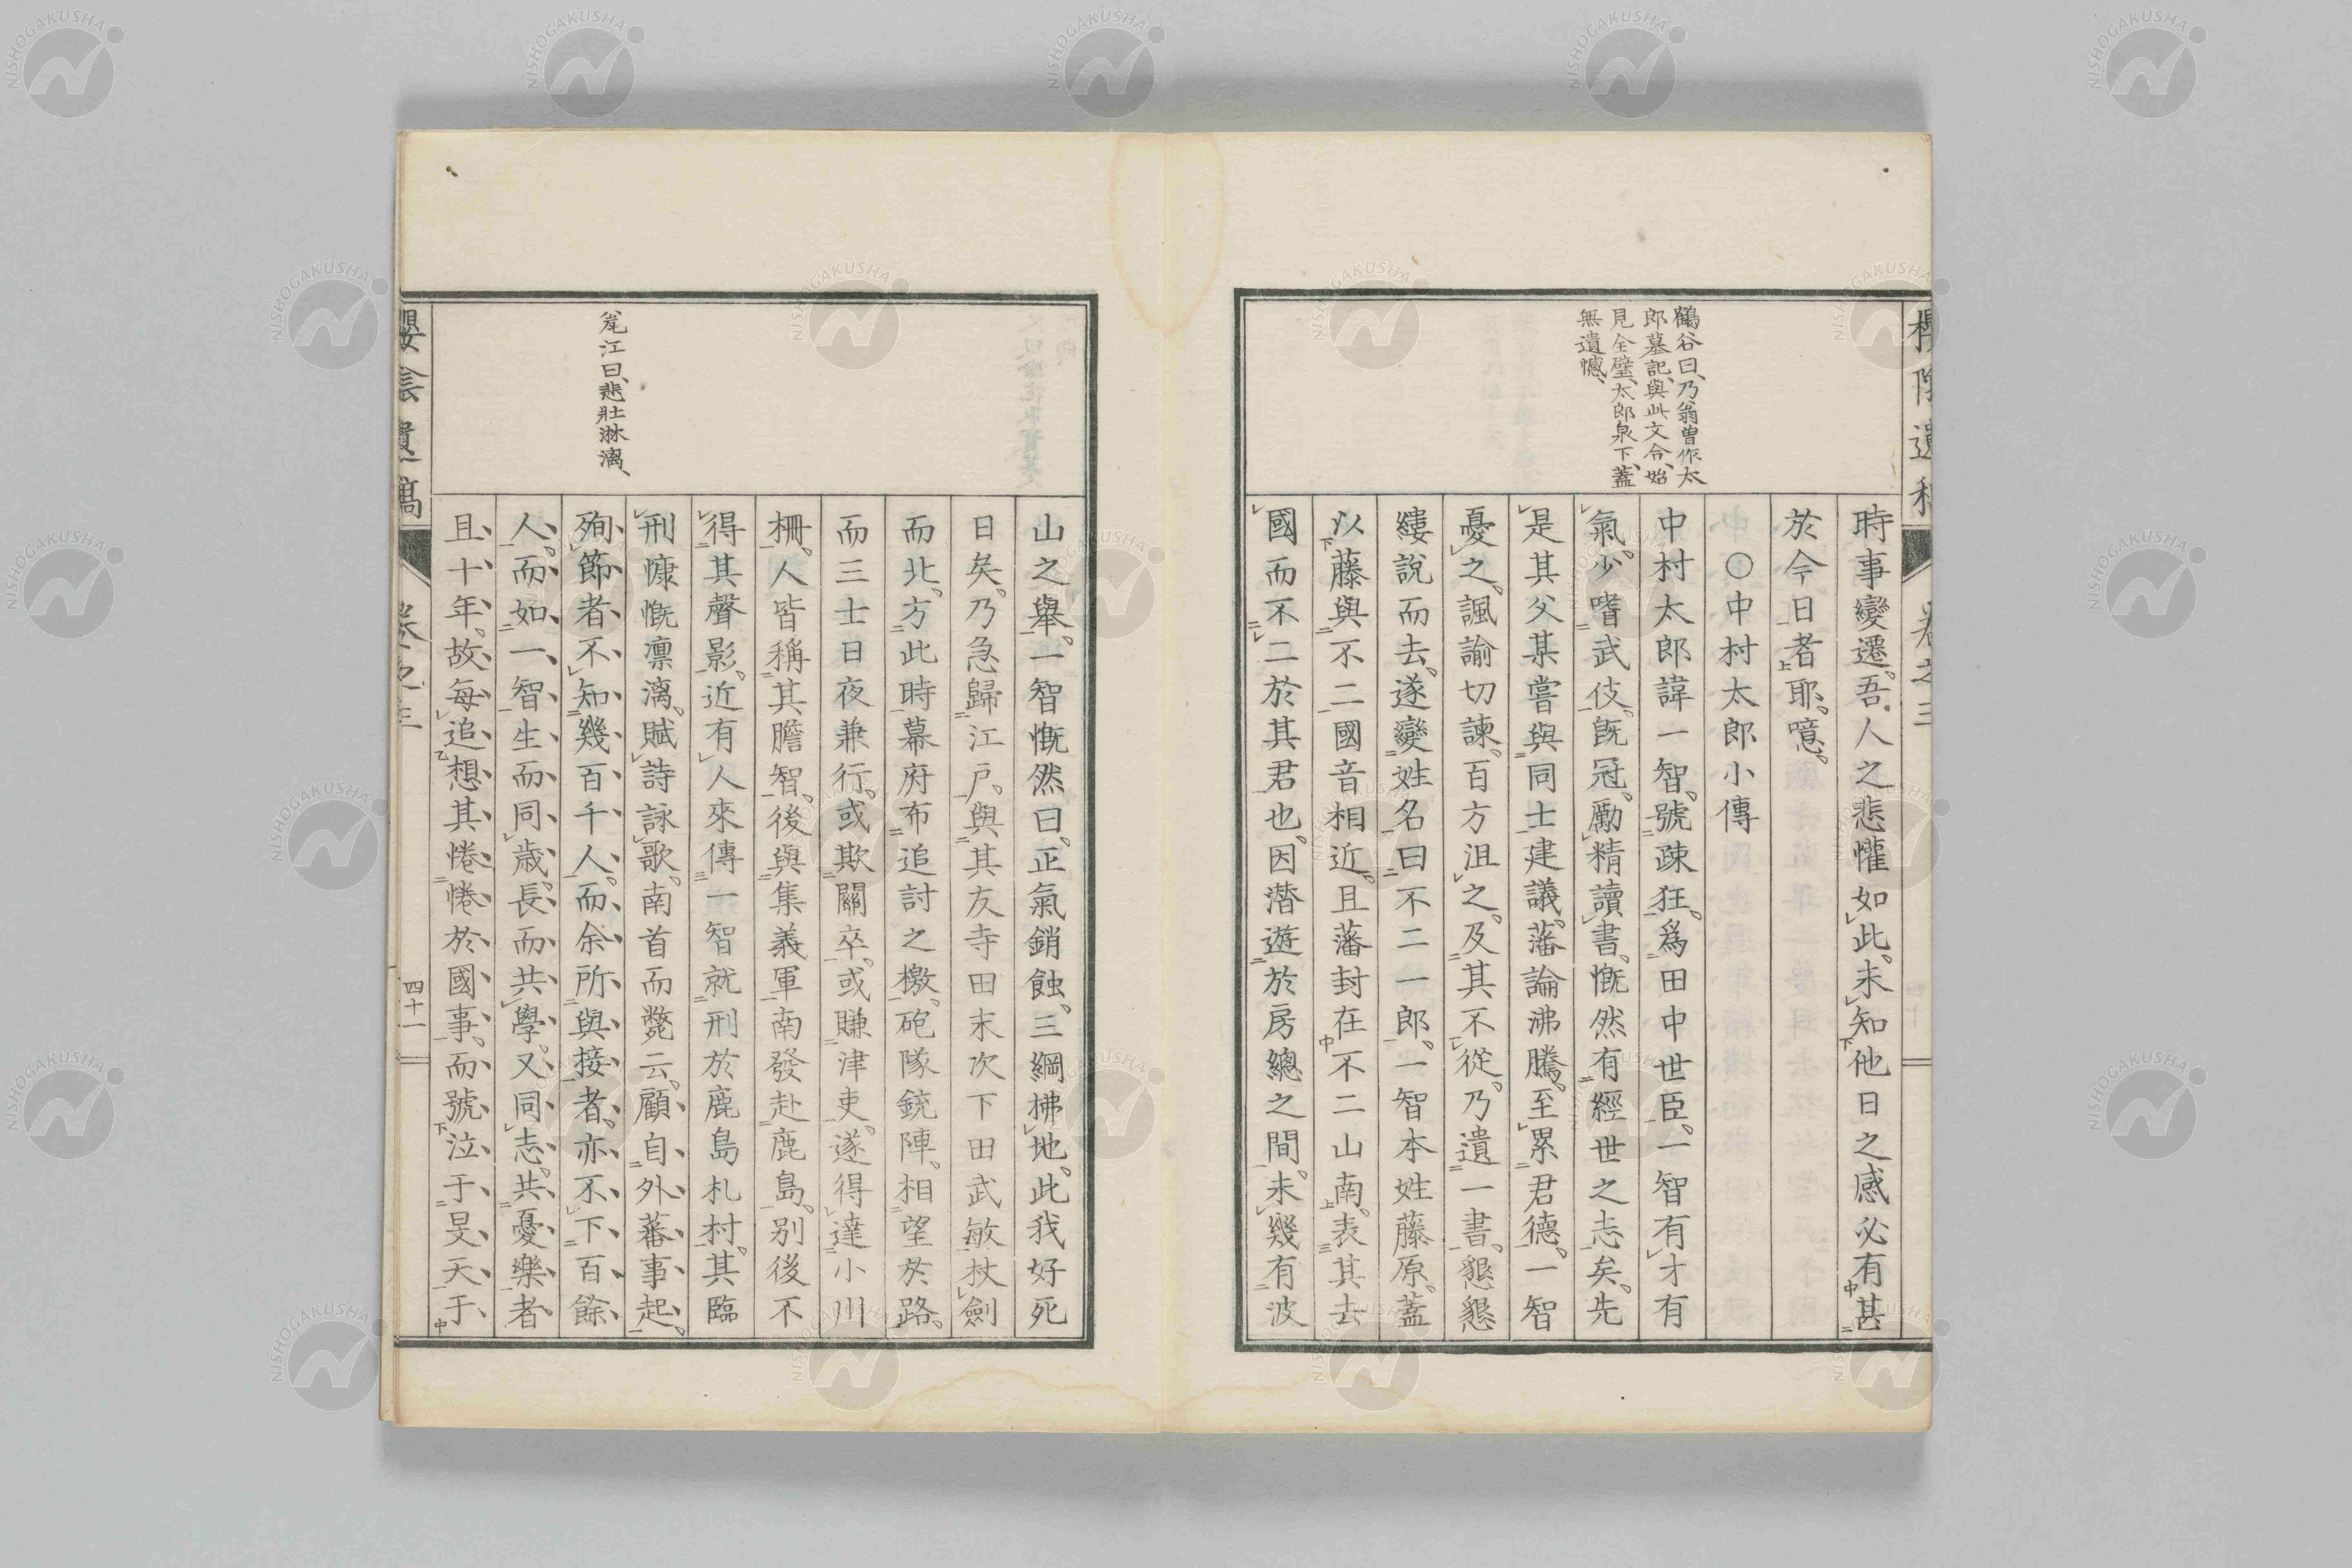 鶴谷曰、乃翁曽作太
郎墓記、與此文合、始
見全璧、太郎泉下、蓋
無遺憾、
時事變遷。吾人之悲懽如此、未知他日之感必有甚
於今日者耶。噫。
○中村太郎小傳
中村太郎諱一智。號疎狂。爲田中世臣、一智有才有
氣。少嗜武伎。既冠、勵精讀書。慨然有經世之志矣。先
是其父某嘗與同士建議。藩論沸騰。至累君德。一智
憂之。諷諭切諫。百方沮之。及其不從。乃遺一書。懇懇
縷說而去。遂變姓名曰不二一郎。一智本姓藤原。蓋
以藤與不二國音相近。且藩封在不二山南。表其去
國而不二於其君也。因潜遊於房總之間。未幾有波
卷之三
山之舉。一智慨然曰、正氣銷蝕、三綱拂地。此我好死
日矣。乃急歸江戶。與其友寺田末次下田武敏杖劍
而北。方此時幕府布追討之檄。砲隊銃陣。相望於路。
而三士日夜兼行。或欺關卒。或賺津吏。遂得達小川
柵。人皆稱其膽智。後與集義軍南發赴鹿島。別後不
得其聲影。近有人來傳一智就刑於鹿島札村。其臨
刑慷慨凛漓。賦詩詠歌。南首而斃云。顧自外蕃事起。
殉節者不知幾百千人。而余所與接者。亦不下百餘
人。而如一智生而同歲。長而共學。又同志。共憂樂者
且十年。故每追想其惓惓於國事。而號泣于旻天于
毟江曰、悲壯淋漓、
櫻陰遺稿
卷之三
四十一